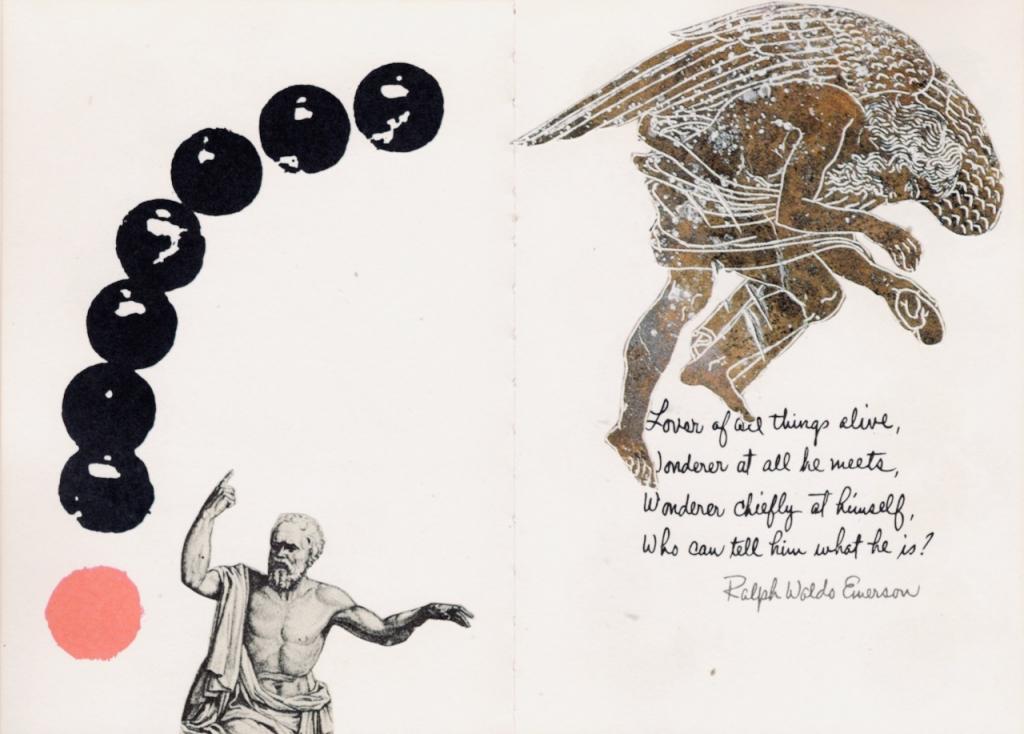 Lover of all things alive,
Wonderer at all he meets,
Wonderer chiefly at himself,
Who can tell him what he is?
Ralph Waldo Emerson